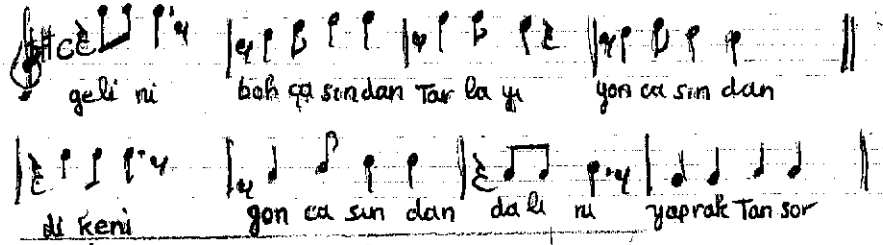 geli ni boh ça sından Tar la yı yon ca sın dan
di keni gon ca sın dan da li ni yaprak Tan sor